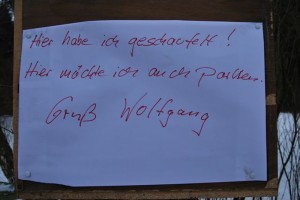 Hier habe ich geschaufelt!
Hier möchte ich auch parken.
Gruß Wolfgang